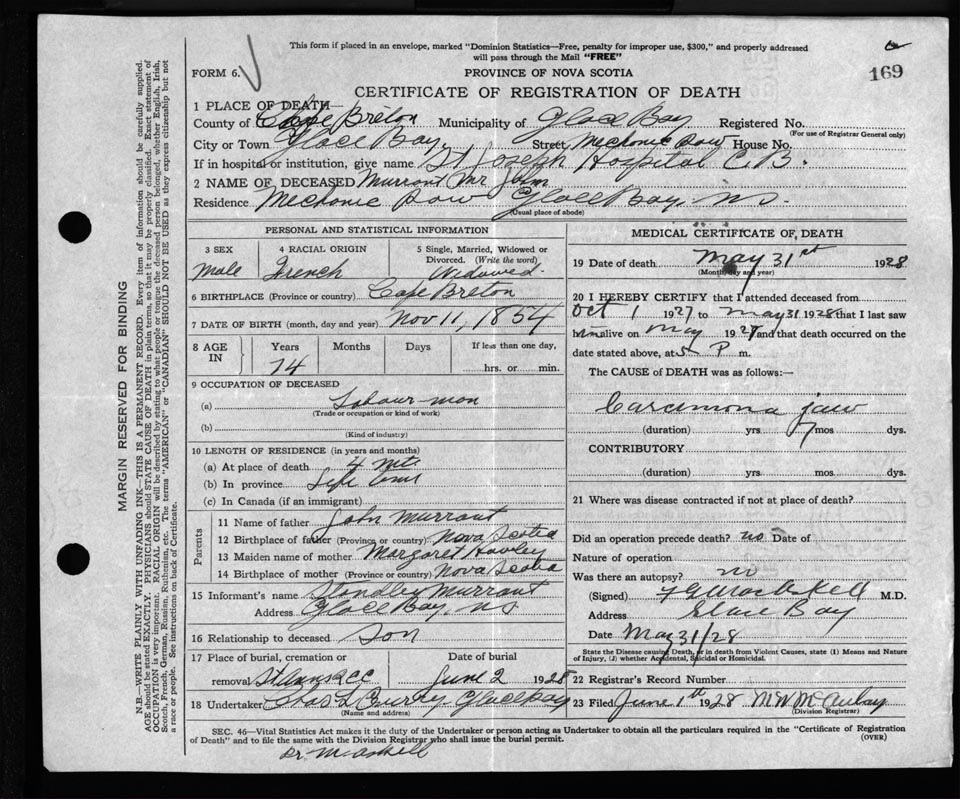 This form if placed in an envelope, marked "Dominion Statistics—Free, penalty for improper use, $300," and properly addressed
will pass through the Mail "FREE"
169
FORM 6.
PROVINCE OF NOVA SCOTIA
CERTIFICATE OF REGISTRATION OF DEATH
1 PLACE OF DEATH—
County of Cape Breton Municipality of Glace Bay Registered No.
(For use of Registrar General only)
City or Town Glace Bay, Street Mechonic Row House No.
If in hospital or institution, give name St Joseph Hospital C.B.
2 NAME OF DECEASED Murrant Mr John
Residence Mechonic Row Glace Bay, NS.
(Usual place of abode)
PERSONAL AND STATISTICAL INFORMATION
3 SEX
Male
4 RACIAL ORIGIN
French
5 Single, Married, Widowed or
Divorced. (Write the word)
Widowed
6 BIRTHPLACE (Province or country) Cape Breton
7 DATE OF BIRTH (month, day and year) Nov 11, 1854
8 AGE IN
Years Months Days If less than one day,
74 hrs. or min.
9 OCCUPATION OF DECEASED
(a) Labour man
(Trade or occupation or kind of work)
(b)
(Kind of industry)
10 LENGTH OF RESIDENCE (in years and months)
(a) At place of death 4
(b) In province Life
(c) In Canada (if an immigrant)
Parents
11 Name of father John Murrant
12 Birthplace of father (Province or country) Nova Scotia
13 Maiden name of mother Margaret Hawley
14 Birthplace of mother (Province or country) Nova Scotia
15 Informant's name Standley Murrant
Address Glace Bay, NS
16 Relationship to deceased Son
17 Place of burial, cremation or Date of burial
removal St Anns RCC June 2 1928
18 Undertaker Chas L Glace bay
(Name and address)
MEDICAL CERTIFICATE OF DEATH
19 Date of death May 31st 1928
(Month, day and year)
20 I HEREBY CERTIFY that I attended deceased from
Oct 1 1927 to May 31 1928 that I last saw
him alive on May 192 and that death occurred on the
date stated above, at 5 P m.
The CAUSE of DEATH was as follows:—
Carcimona jaw
(duration) yrs. 7 mos. dys.
CONTRIBUTORY
(duration) yrs. mos. dys.
21 Where was disease contracted if not at place of death?
Did an operation precede death? no Date of
Nature of operation
Was there an autopsy? no
(Signed) MacAskell M.D.
Address Glace Bay
Date May 31/28
State the Disease causing Death, or in death from Violent Causes, state (1) Means and Nature
of Injury, (2) whether Accidental, Suicidal or Homicidal.
22 Registrar's Record Number
23 Filed June 1th 1928 M W McAulay
(Division Registrar)
SEC. 46—Vital Statistics Act makes it the duty of the Undertaker or person acting as Undertaker to obtain all the particulars required in the "Certificate of Registration
of Death" and to file the same with the Division Registrar who shall issue the burial permit.
(OVER)
Dr. McAskell
MARGIN RESERVED FOR BINDING
N.B.—WRITE PLAINLY WITH UNFADING INK—THIS IS A PERMANENT RECORD. Every item of information should be carefully supplied.
AGE should be stated EXACTLY. PHYSICIANS should STATE CAUSE OF DEATH in plain terms, so that it may be properly classified. Exact statement of
OCCUPATION is very important. RACIAL ORIGIN will be described by stating to what people or tongue the deceased person belonged, whether English, Irish,
Scotch, French, German, Russian, Ruthenian, etc. The terms "AMERICAN" or "CANADIAN" SHOULD NOT BE USED as they express citizenship but not
a race or people. See instructions on back of Certificate.